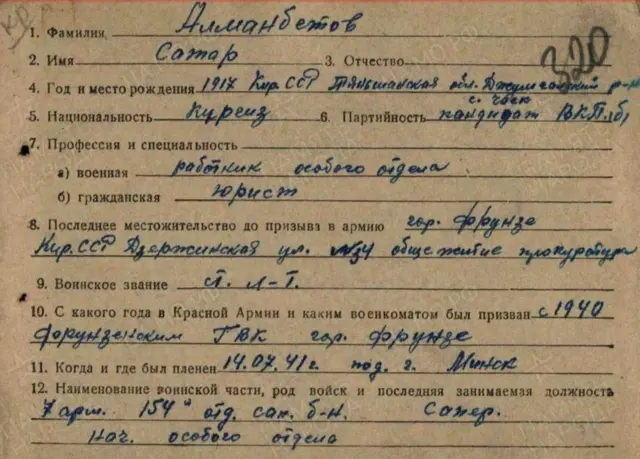 320
1. Фамилия Алманбетов
2. Имя Сатар 3. Отчество
4. Год и место рождения 1917 Кир. ССР Тяньшанская обл. Джумгалский р-н
с. Чаек
5. Национальность Киргиз 6. Партийность кандидат ВКПлб)
7. Профессия и специальность
а) военная работник особого отдела
б) гражданская юрист
8. Последнее местожительство до призыва в армию гор. Фрунзе
Кир. ССР Дзержинская ул. №34 общежитие прокуратура
9. Воинское звание ст. л-т.
10. С какого года в Красной Армии и каким военкоматом был призван с 1940
Фрунзенским ГВК гор. Фрунзе
11. Когда и где был пленен 14.07.41 г. под. г. Минск
12. Наименование воинской части, род войск и последняя занимаемая должность
7 арм. 154 отд. сап. б-н. Сапер.
Нач. особого отдела